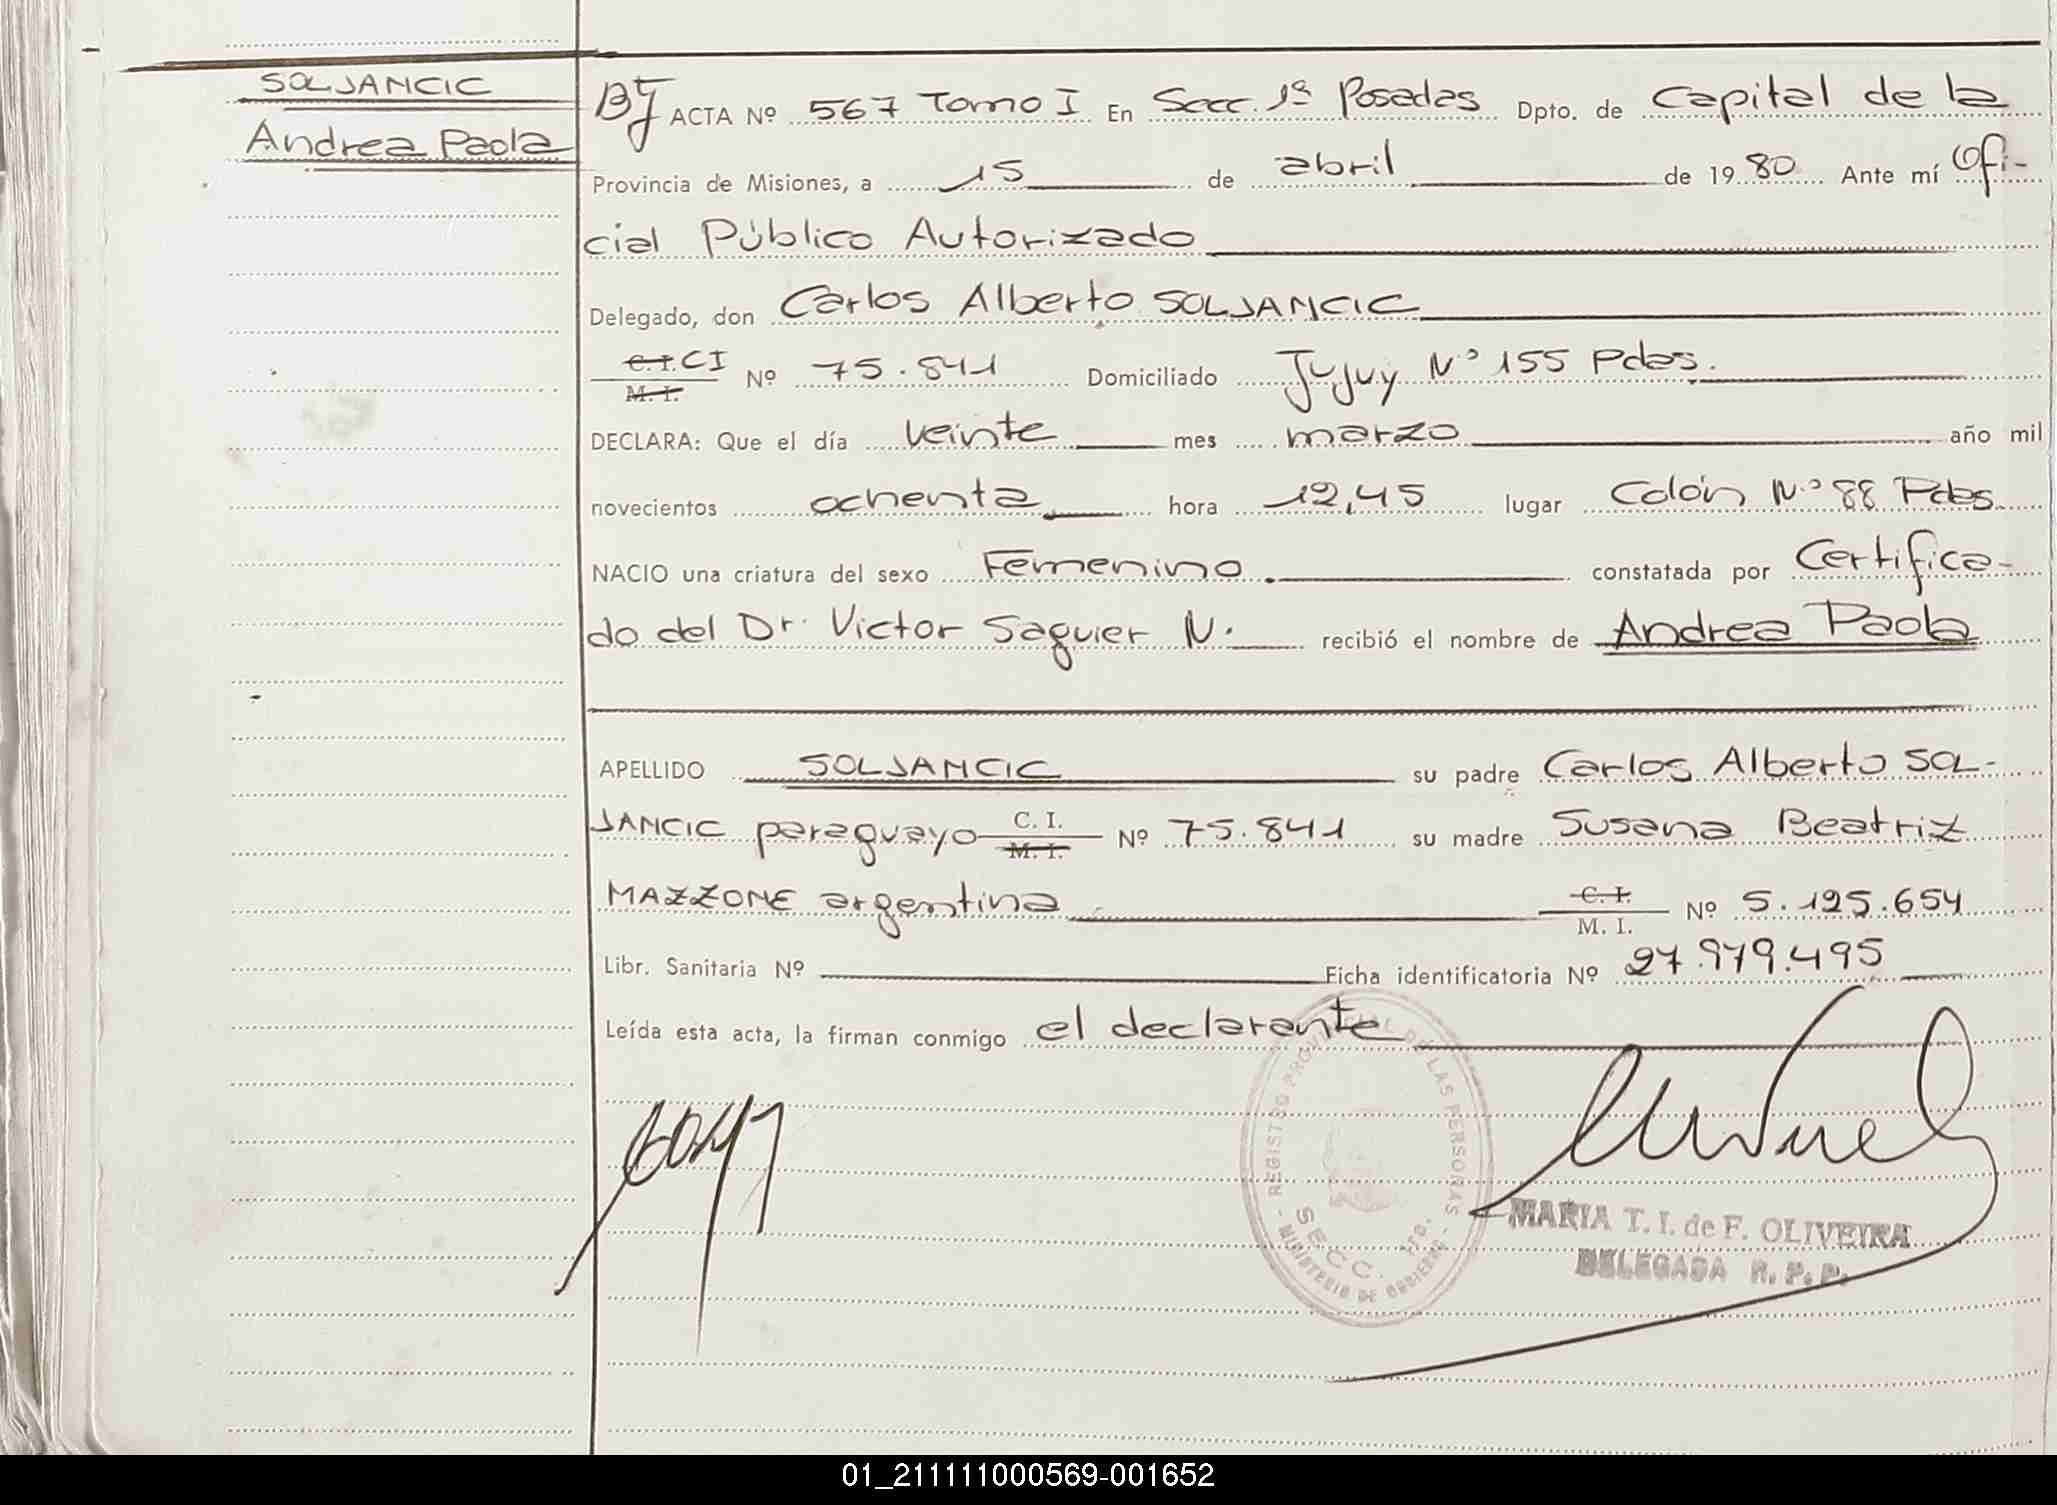 SOLJANCIC
Andrea Paola
BJ ACTA Nº 567 Tomo I En Secc. 1ª Posadas Dpto. de Capital de la
Provincia de Misiones, a 15 de abril de 1980 Ante mí Ofi-
cial Público Autorizado
Delegado, don Carlos Alberto SOLJANCIC
C. I. CI
M. I.
Nº 75.841 Domiciliado Jujuy Nº 155 Pdas.
DECLARA: Que el día veinte mes marzo año mil
novecientos ochenta hora 12,45 lugar Colón Nº 88 Pdas.
NACIO una criatura del sexo Femenino. constatada por Certifica-
do del Dr. Victor Saguier N. recibió el nombre de Andrea Paola
APELLIDO SOLJANCIC su padre Carlos Alberto SOL-
JANCIC paraguayo C. I. M. I. Nº 75.841 su madre Susana Beatriz
MAZZONE argentina C. I. M. I. Nº 5.125.654
Libr. Sanitaria Nº Ficha identificatoria Nº 27.979.495
Leída esta acta, la firman conmigo el declarante
REGISTRO PROVINCIAL DE LAS PERSONAS
SECC.
MINISTERIO DE GOBIERNO
MARIA T. I. de F. OLIVEIRA
DELEGADA R. P. P.
01_211111000569-001652